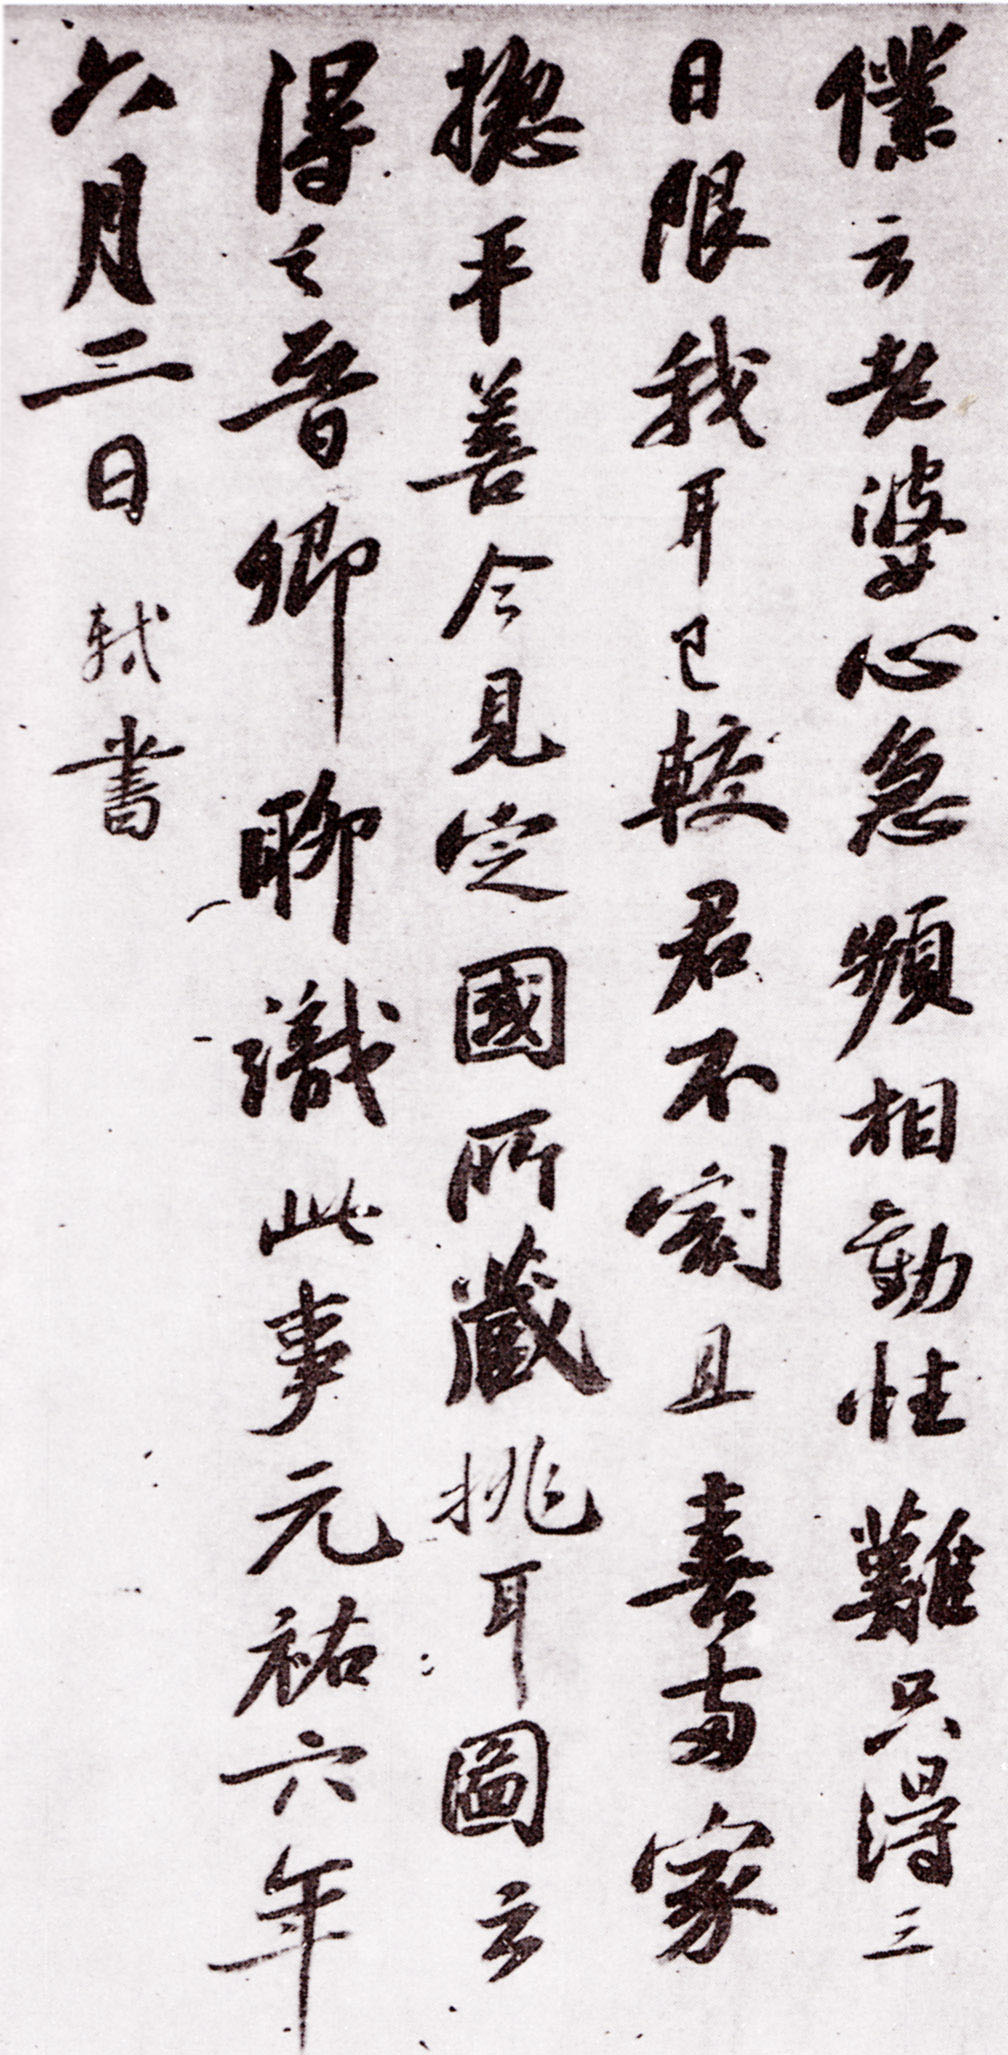 僕云老婆心急頻相勸性難只得三
日限我耳已較君不割且喜両家
揔平善今見定國所藏挑耳圖云
得之晉卿聊識此事元祐六年
六月二日軾書